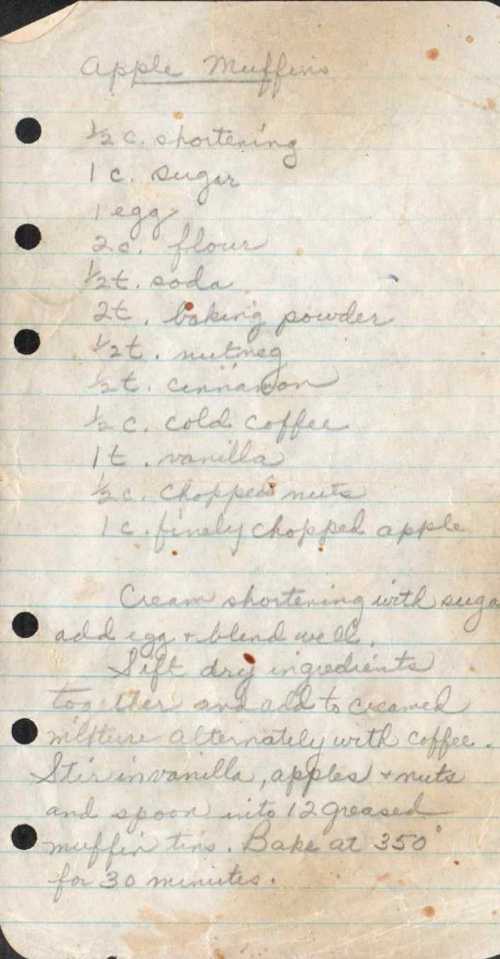 Apple Muffins
1/2 c. shortening
1 c. sugar
1 egg
2 c. flour
1/2 t. soda
2 t. baking powder
1/2 t. nutmeg
1/2 t. cinnamon
1/2 c. cold coffee
1 t. vanilla
1/2 c. chopped nuts
1 c. finely chopped apple
Cream shortening with suga
add egg + blend well.
Sift dry ingredients
together and add to creamed
mixture alternately with coffee.
Stir in vanilla, apples + nuts
and spoon into 12 greased
muffin tins. Bake at 350°
for 30 minutes.